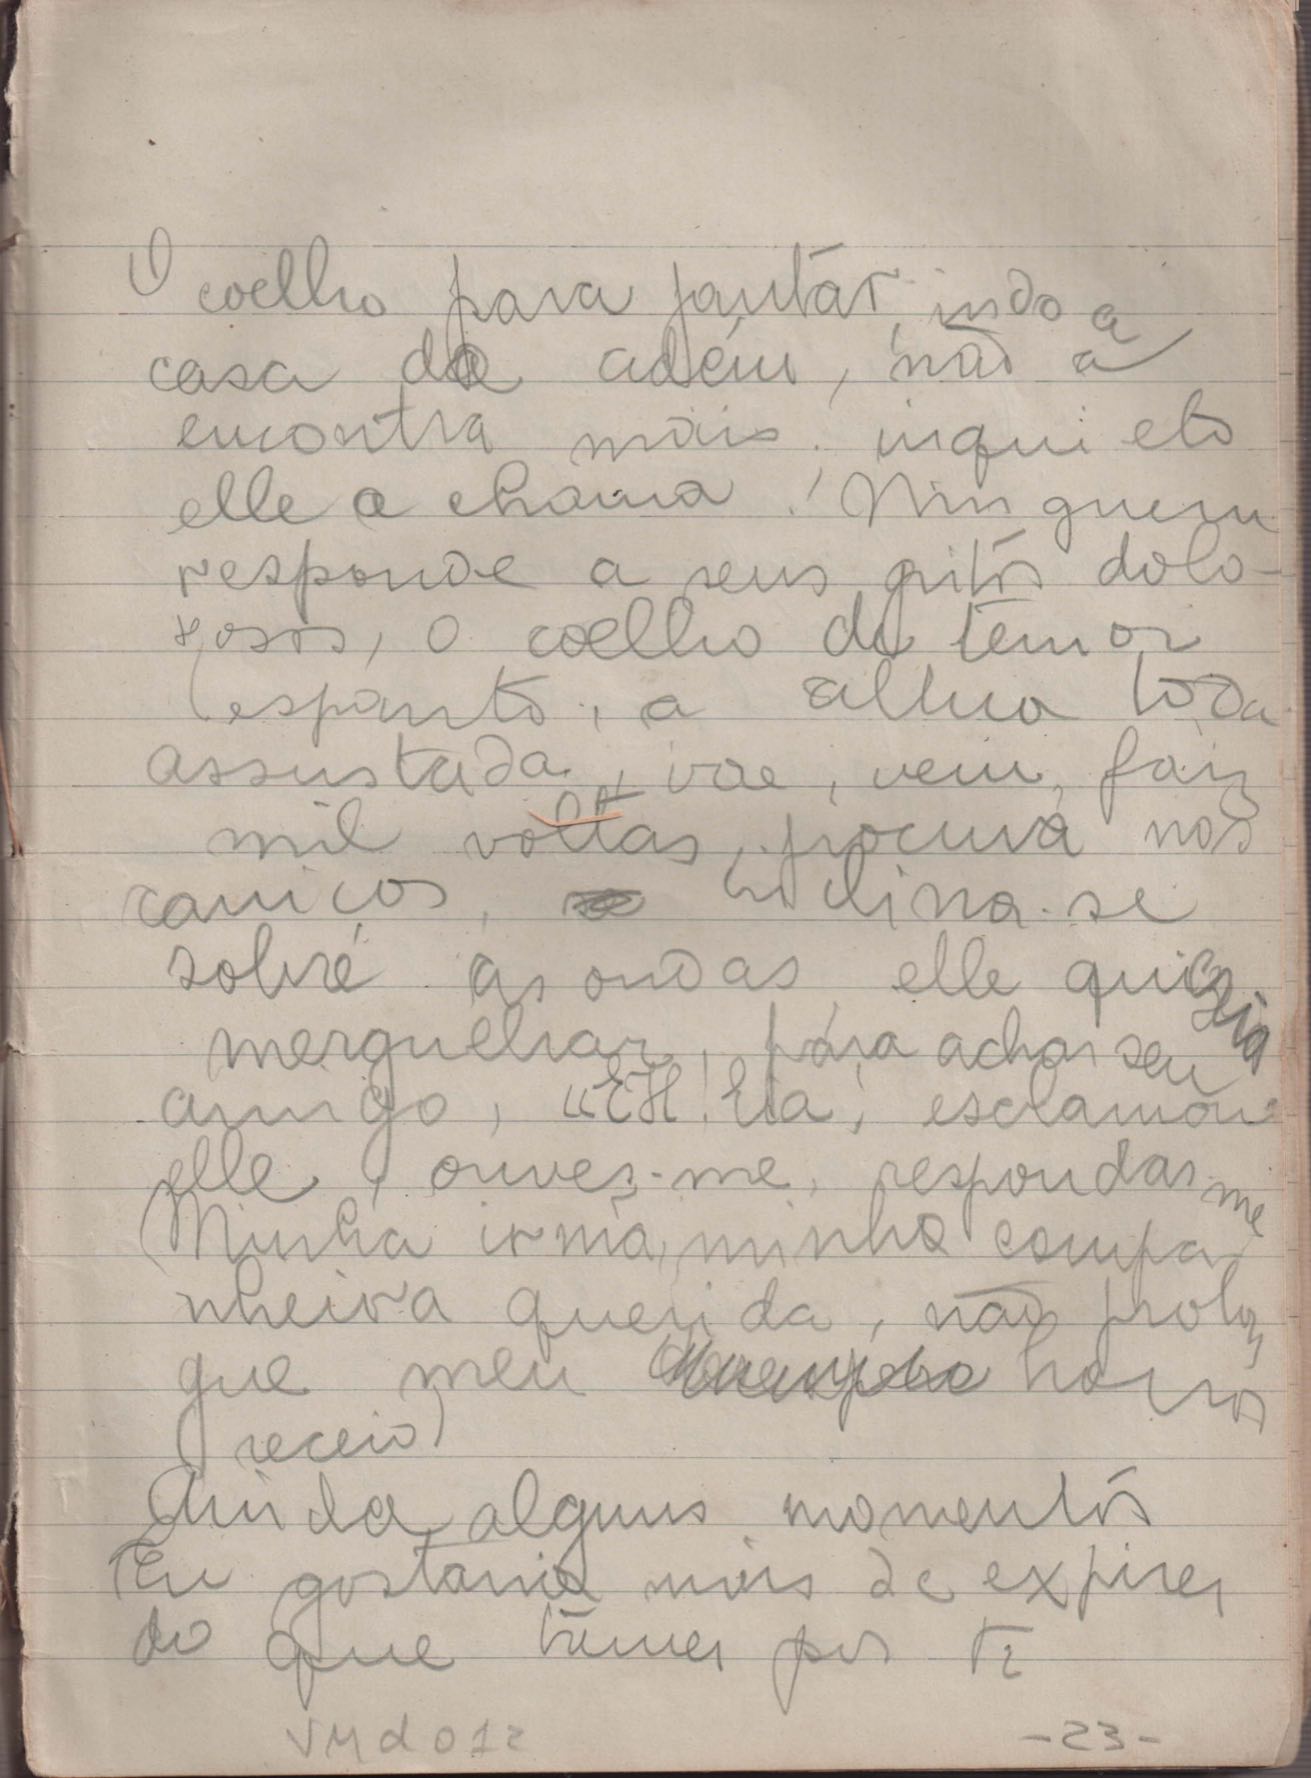 O coelho para jantar, indo a
casa da adém, não a
encontra mais. inquieto
elle a chama! Ninguem
responde a seus gritos dolo-
rosos, o coelho de temor
espanto, a alma toda
assustada, vae, vem, faiz
mil voltas, procura nos
caniços, inclina-se
sobre as ondas elle queria
merguelhar, para achar seu
amigo, "EH! Eia! esclamou
elle, ouves-me, respondas-me
Minha irmã, minha compa
nheira querida, não prolon
gue meu horros
receio
Ainda alguns momentos
Eu gostaria mais de expirer
do que temer por ti
VMd012 -23-